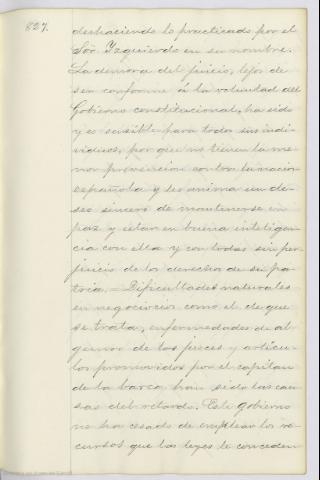 827.
deshaciendo lo practicado por el
Sör Izquierdo en su nombre.
La demora del juicio, lejos de
ser conforme á la voluntad del
Gobierno constitucional, ha sido
y es sensible para todos sus indi-
viduos, por que no tienen la me-
nor prevencion contra la nacion
española y les anima un de-
seo sincero de mantenerse en
paz y estar en buena inteligen-
cia con ella y con todas sin per-
juicio de los derechos de su pa-
tria. — Dificultades naturales
en negocios como el de que
se trata, enfermedades de al-
gunos de los jueces y artícu-
los promovidos por el capitan
de la barca han sido las cau-
sas del retardo. Este gobierno
no ha cesado de emplear los re-
cursos que las leyes le conceden